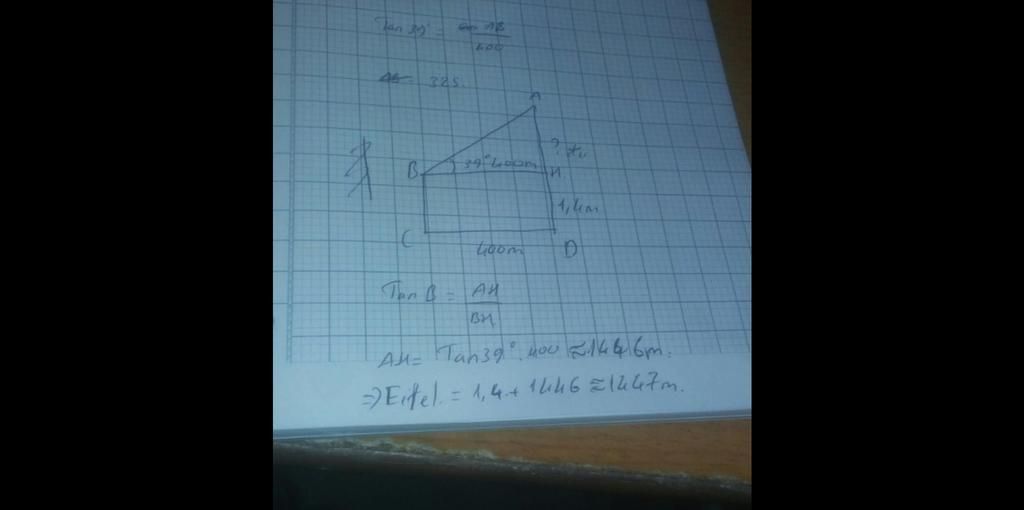 Tan 39° = AB
400
325.
A
?
B
39° 400m
H
1,4m
C
400m
D
Tan B = AH
BH
AH = Tan39°.400 ≈ 1446m.
⇒ Eifel. = 1,4 + 1446 ≈ 1447m.